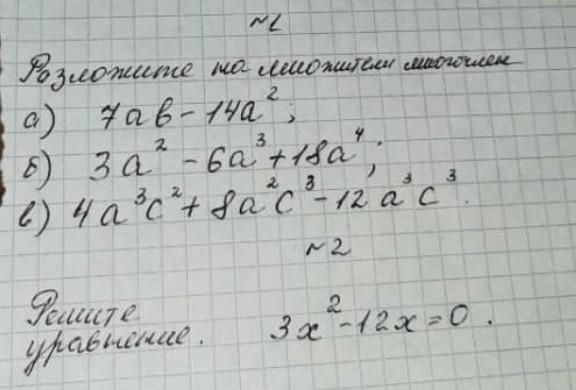 №1
Разложите на множители многочлен
а) 7ab - 14a²;
б) 3a² - 6a³ + 18a⁴;
в) 4a³c² + 8a²c³ - 12a³c³.
№2
Решите
уравнение. 3x² - 12x = 0.